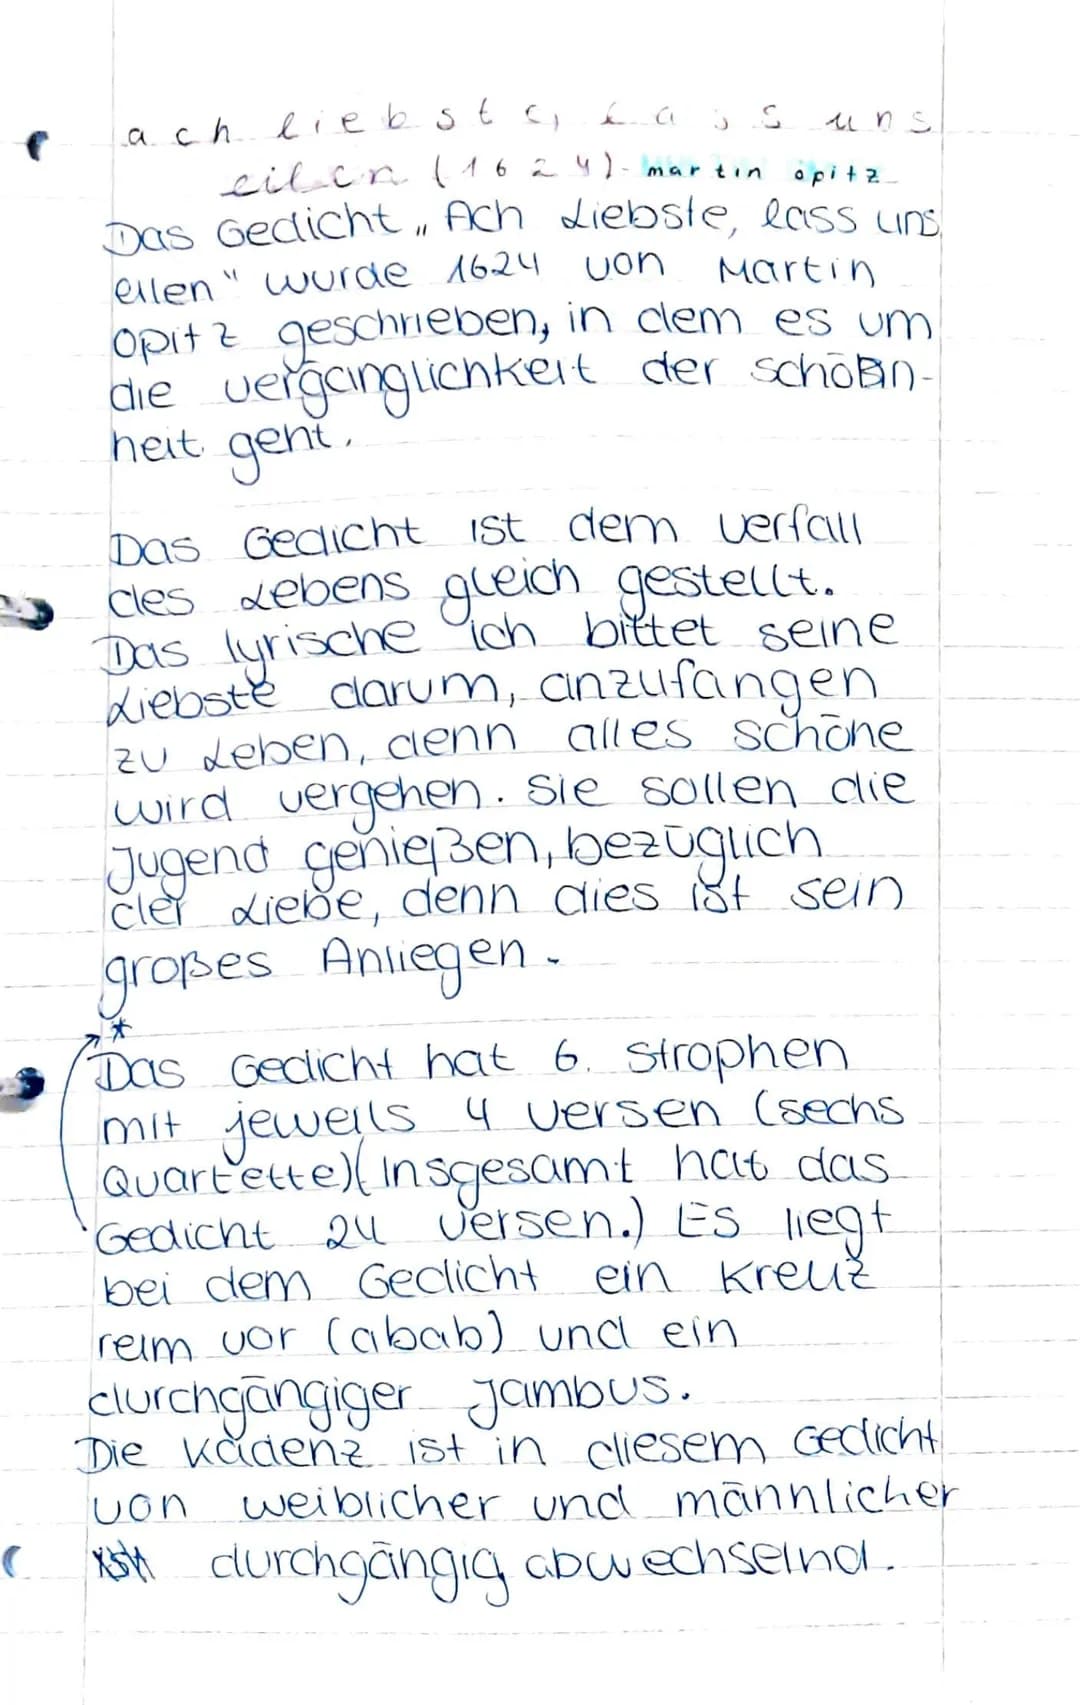 ach liebste, lass uns
eilen (1624)- martin opitz
Das Gedicht „Ach Liebste, lass uns
eilen" wurde 1624 von Martin
Opitz geschrieben, in dem es um
die vergänglichkeit der schön-
heit geht.
Das Gedicht ist dem verfall
des Lebens gleich gestellt.
Das lyrische ich bittet seine
Liebste darum, anzufangen
zu Leben, denn alles schöne
wird vergehen. Sie sollen die
Jugend genießen, bezüglich
der Liebe, denn dies ist sein
großes Anliegen.
*
Das Gedicht hat 6. Strophen
mit jeweils 4 Versen (sechs
Quartette)(Insgesamt hat das
Gedicht 24 Versen.) Es liegt
bei dem Gedicht ein Kreuz
reim vor (abab) und ein
durchgängiger Jambus.
Die Kadenz ist in diesem Gedicht
von weiblicher und männlicher
durchgängig abwechselnd.